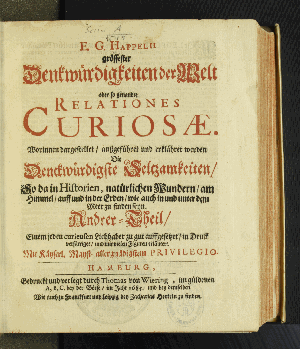 E. G. HAPPELII
grösseste
Denkwürdigkeiten der Welt
oder so genandte
RELATIONES
CURIOSÆ.
Worinnen dargestellet / außgeführet und erklähret werden
Die
Denckwürdigste Seltzamkeiten /
So da in Historien, natürlichen Wundern / am
Himmel / auff und in der Erden / wie auch in und unter dem
Meer zu finden seyn.
Andrer-Theil /
Einem jeden curieusen Liebhaber zu gut auffgesetzet / in Druck
verfärtiget / und mit vielen Figuren erläutert.
Mit Käyserl. Mayst. allergnädigstem PRIVILEGIO.
HAMBURG,
Gedruckt und verlegt durch Thomas von Wiering / im güldenen
A, B, C. bey der Börse / im Jahr 1685. und bey demselben
Wie auch zu Franckfurt und Leipzig bey Zacharias Herteln zu finden.